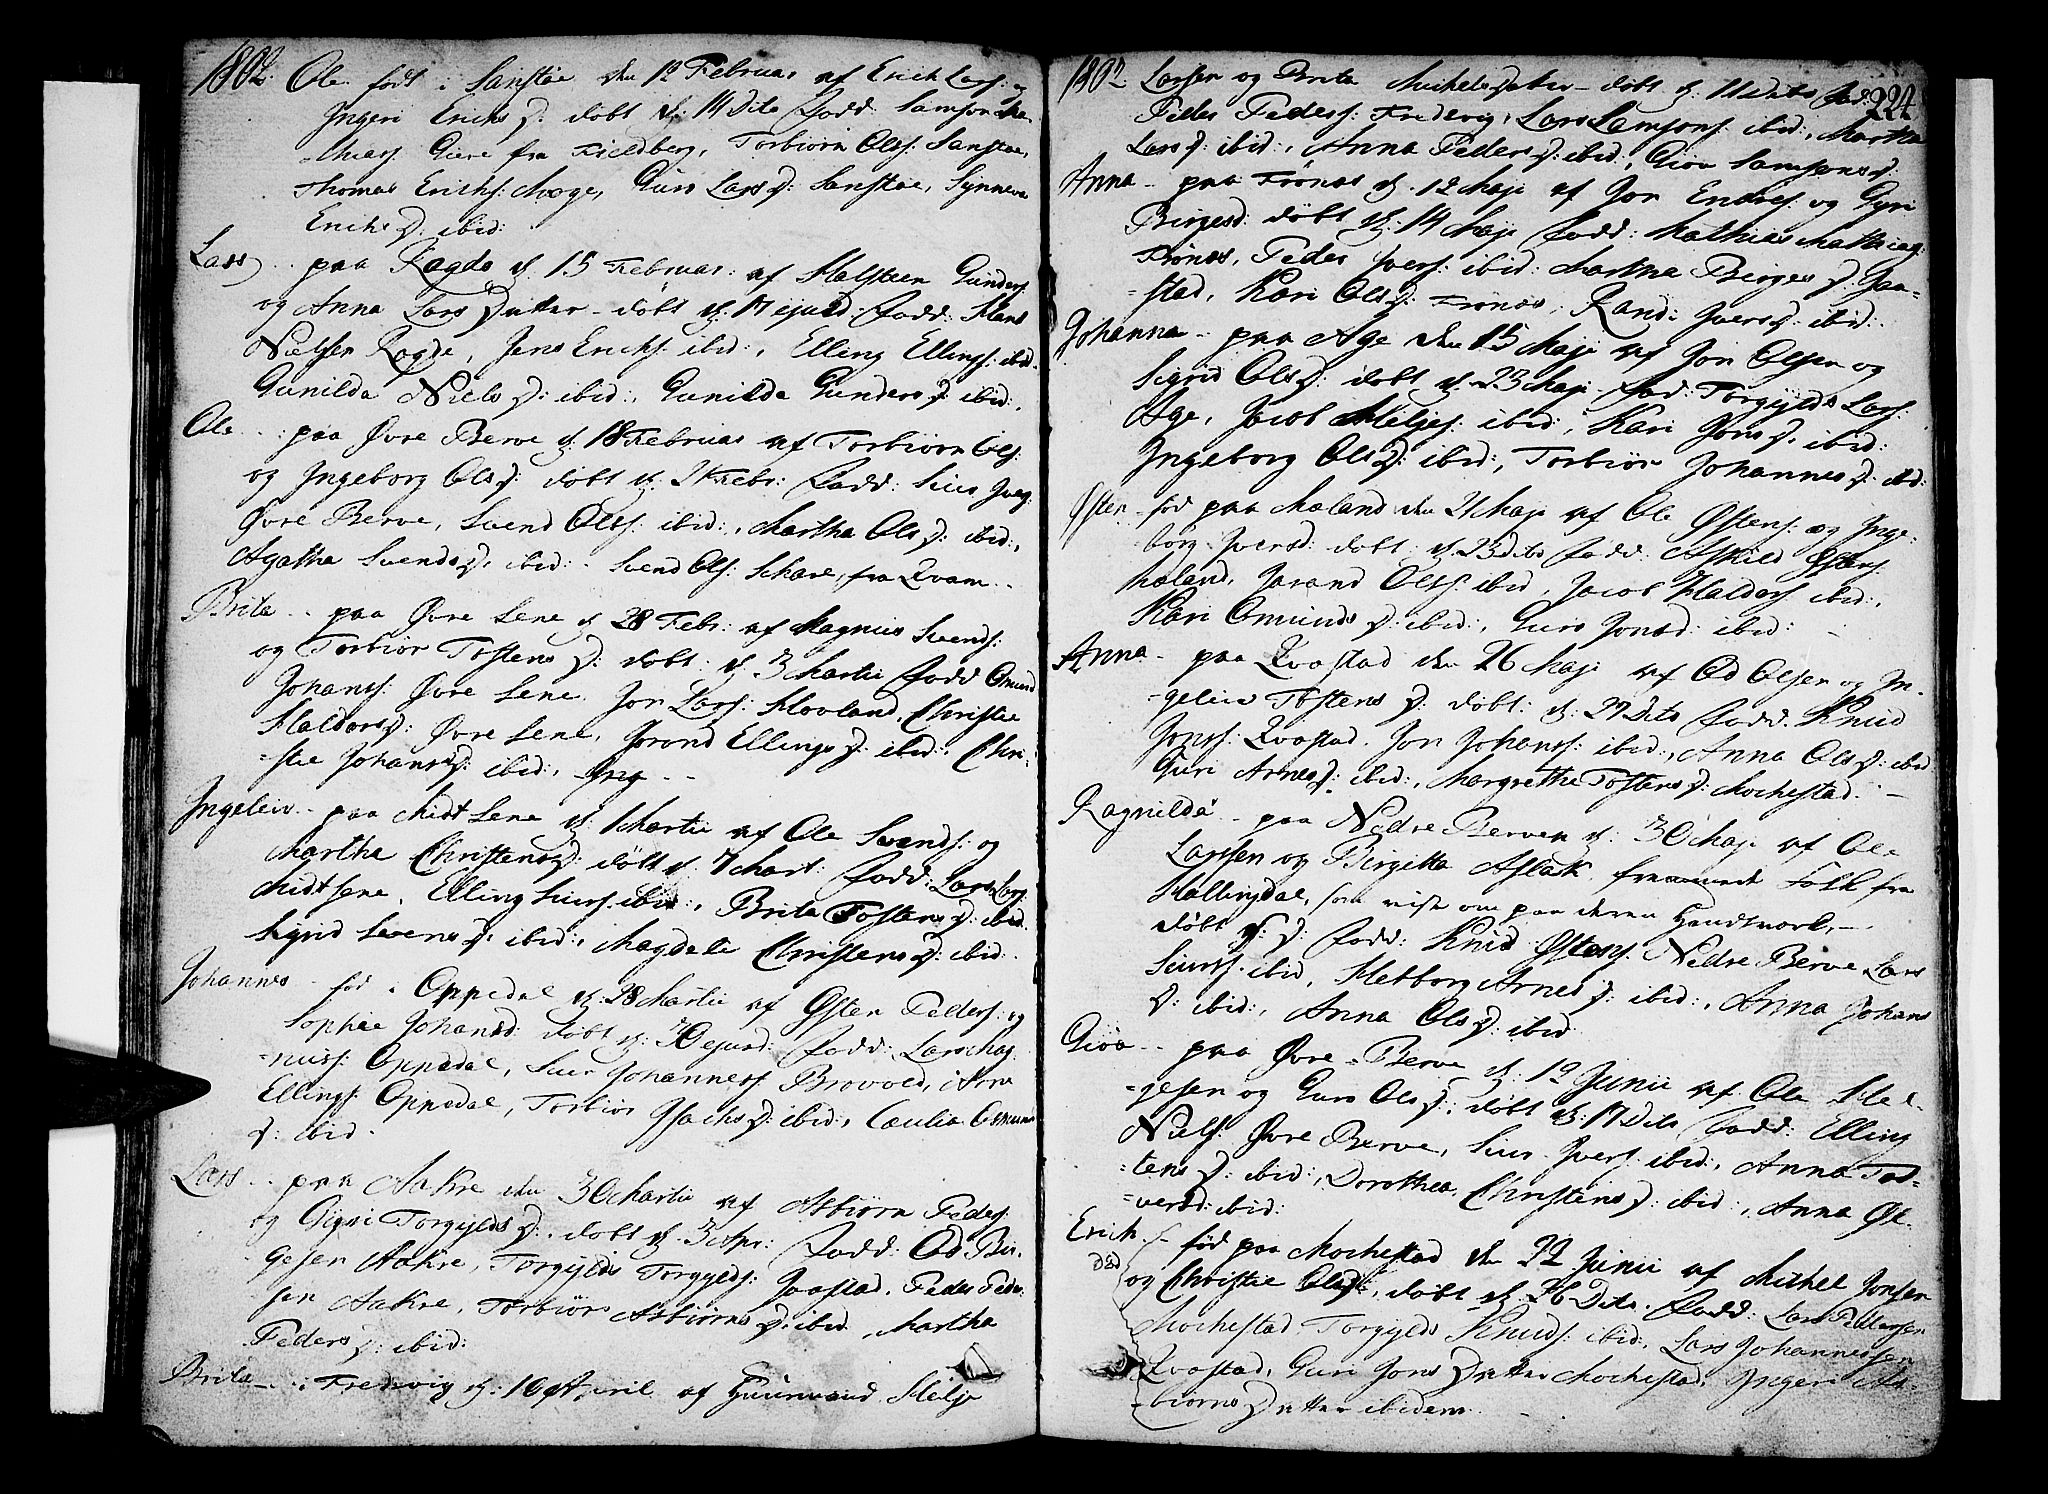 1802. Ole født i Sanstøe den 12 Februar af Erich Lars: og
Ingeri Erichs D. døbt d. 14 Dito Fadd: Samson
Giere fra Fieldberg, Torbiørn Ols: Sanstøe,
Thomas Erichs: Mæge, Guro Lars D: Sanstøe, Synneve
Erichs D. ibid:
Lars .. paa Ragde d. 15 Februar: af Halsteen Gunders:
og Anna Lars Datter - døbt d. 17 ejusd: Fadd: Hans
Nielsen Ragde, Jens Erichs: ibid:, Elling Ellings: ibid.
Gunilda Niels D: ibid:, Gunilda Gunders D: ibid.
Ole .. paa Øvre Berve d. 18 Februar af Torbiørn Ols:
og Ingeborg Ols D: døbt d. 21 Febr: Fadd: Siur Iver:
Øvre Berve, Svend Ols: ibid:, Martha Ols D: ibid:,
Agatha Svends D: ibid: - Svend Ols: Skare, fra Qvam -
Brita .. paa Øvre Sene d. 28 Febr: af Magnus Svends:
og Torbiør Tostens D: døbt: d. 3 Martii Fadd Omund
Johans: Øvre Sene. Jon Lars: Hovland, Christie
Haldors D: Øvre Sene, Jorond Ellings D: ibid: Chri-
-stie Johans D: ibid:, -
Ingeleiv - paa Midt Sene d. 1 Martii af Ole Svends: og
Martha Christens D: døbt d. 7 Mart: Fadd: Lars Lars:
Midtsene, Elling Siurs: ibid:, Brita Tostens D: ibid.
Sigrid Svens D: ibid:, Magdeli Christens D: ibid:
Johannes - fød i Oppedal d. 28 Martii af Østen Peders: og
Sophie Johansd: døbt d. 30 ejusd: Fadd: Lars Mag-
-nus: Oppedal, Siur Johanness: Brovold, Arne
Ellings: Oppedal, Torbiør Isachs D: ibid:, Cæcilia Osmun
D: ibid.
Lars .. paa Aakre den 30 Martii af Asbiørn Peders:
og Gyri Torgylds D: døbt d. 3 Apr: Fadd: Od Bir-
gesen Aakre, Torgylds Torgylds: Jaastad, Peder Peder
sen Aakre, Torbiør Asbiørns D: ibid, Martha
Peders D: ibid:
Brita - i Fredsvig d. 10 April af Helje
1802. Larsen og Brita Michelsdatter - døbt d. 11 Dito Fad: 224
Peder Peders: Fredvig, Lars Samsons: ibid:, Martha
Lars D: ibid:, Anna Peders D: ibid:, Giøa Samsons D:
Anna - paa Frønes d. 12 Maji af Jon Endres: og Gyri
Birgesd: døbt d. 14 Maji Fadd: Mathias Mathias:
Frønes, Peder Ivers: ibid: Martha Birges D: Jaa-
-stad, Kari Ols D: Frønes, Randi Ivers D: ibid:
Johanna - paa Age den 15 Maji af Jon Olsen og
Sigrid Ols D: døbt d. 23 Maji - Fad: Torgylds Lars:
Age, Jacob Heljes: ibid:, Kari Jons D. ibid:
Ingeborg Ols D: ibid:, Torbiør Johannes D: ibid:
Østen - fød paa Mæland den 21 Maji af Ole Østens: og Inge-
borg Iversd: døbt: d. 23 Dito Fadd: Askild Østens:
Mæland, Jarand Ols: ibid, Jacob Haldors: ibid:,
Kari Omunds D: ibid:, Guro Jonsd: ibid: -
Anna - paa Qvæstad den 26 Maji af Od Olsen og In-
-geleiv Tostens D: døbt: d. 27 Dito Fadd. Knud
Jonss: Qvæstad. Jon Johans: ibid:, Anna Ols D: ibid
Guri Arnes D: ibid:, Margrethe Tostens D: Mochestad. -
Ragnilda - paa Nedre Berven d. 30 Maji af Ole
Larsen og Birgitta Aslak, fremmede Folk fra
Hallingdal, som reise om paa deres Handtverk, -
døbt d: D: Fadd: Knud Østens: Nedre Berve Lars
Siurs: ibid, Herborg Arnes D: ibid:, Anna Johans
D: ibid:, Anna Ols D: ibid:
Giøa .. paa Øvre - Berve d. 12 Junii af Ole Hel-
-gesen og Guro Ols D: døbt d. 17 Dito Fadd: Elling
Niels: Øvre Berve, Siur Ivers: ibid:, Anna Tos-
-tens D: ibid:, Dorothea Christens D: ibid:, Anna Øl-
-versd: ibid:
Erich - fød paa Mochestad den 22 Junii af Michel Jonsen
død og Christie Olsd:, døbt d. 26 Dito. Fadd: Lars Pedersen
Mochestad, Torgylds Knuds: ibid:, Lars Johannessen
Qvæstad, Guri Jons Datter Mochestad, Ingeri As-
-biørns Datter ibidem -